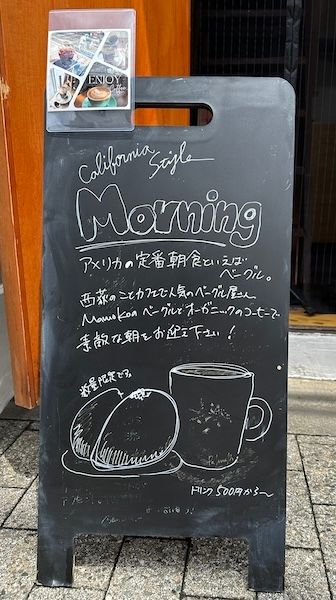 ENJOY
California
Style
Morning
アメリカの定番朝食といえば
ベーグル。
西荻のことカフェで人気のベーグル屋さん
Mamokoのベーグルとオーガニックのコーヒーで
素敵な朝をお迎え下さい!
数量限定です。
ドリンク500円から〜